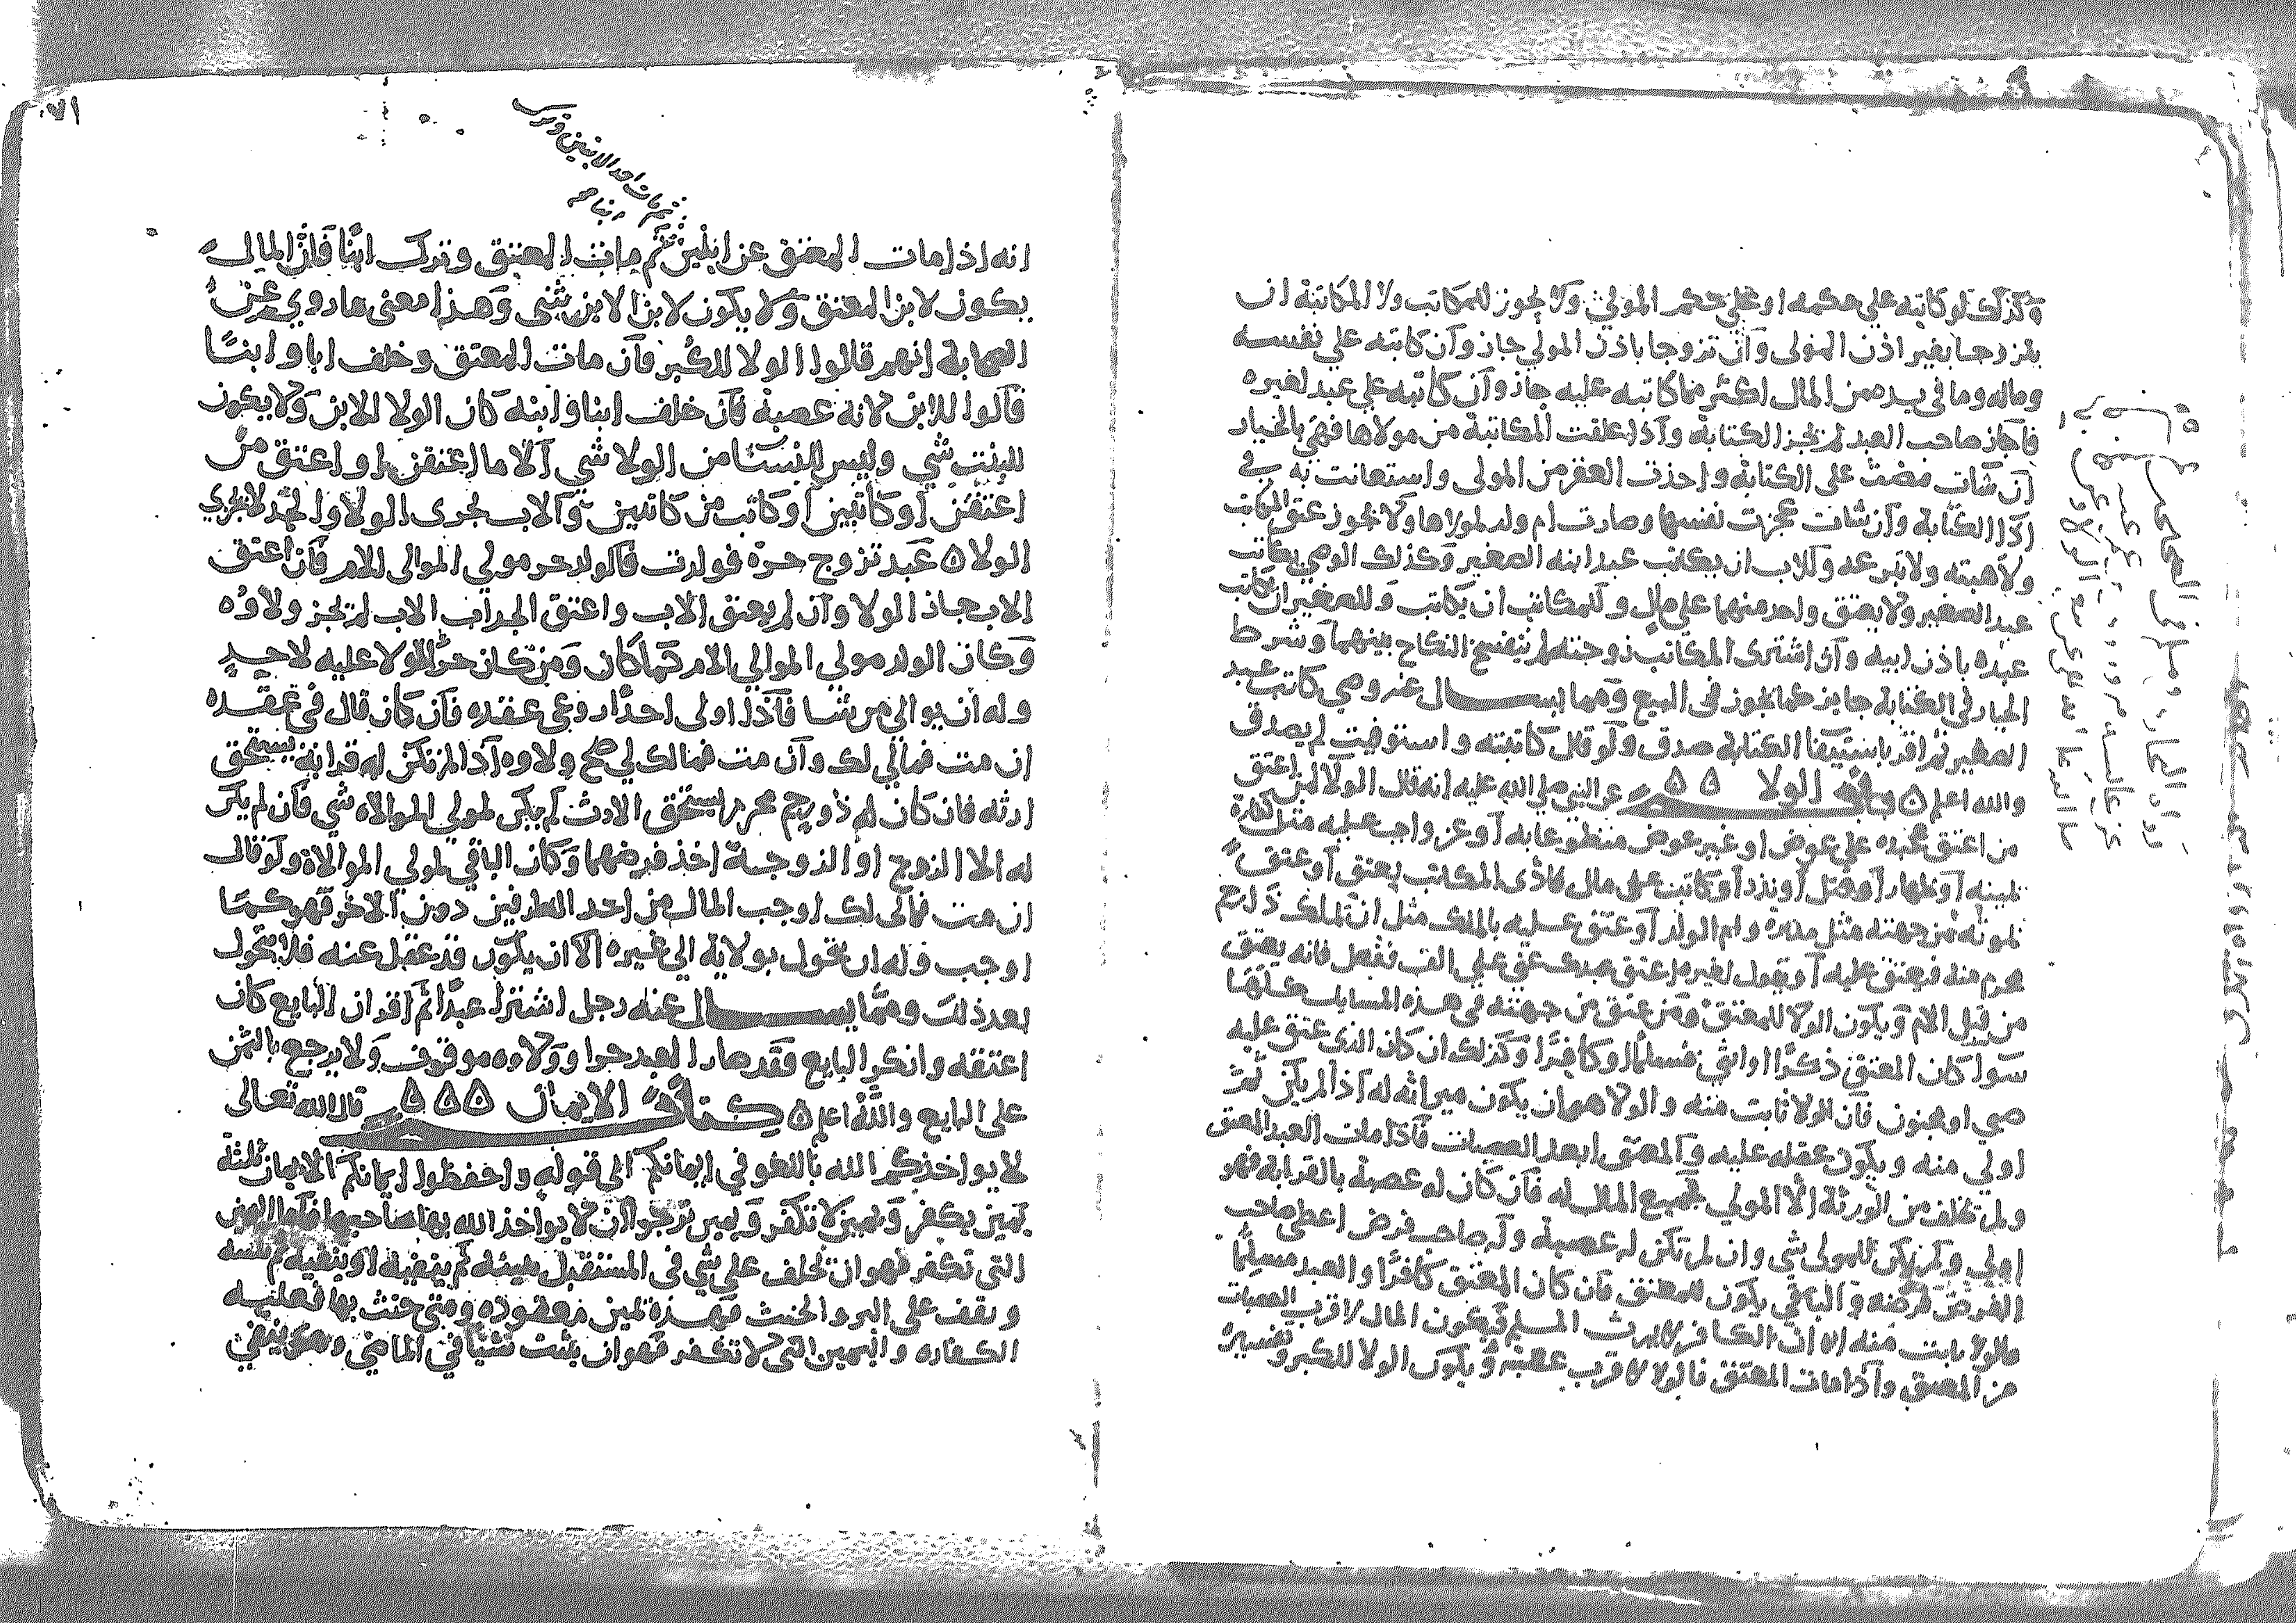 وكذلك لو كاتبه علي حكمه او علي حكم المولي ولا يجوز للمكاتب ولا المكاتبة ان
يتزوجا بغير اذن المولى وان تزوجا باذن المولي جاز وان كاتبه علي نفسه
وماله وما في يده من المال اكثر مما كاتبه عليه جاز وان كاتبه علي عبد لغيره
فاجاز صاحب العبد لم تجز الكتابة واذا علقت المكاتبة من مولاها فهي بالخيار
ان شات مضت على الكتابة واخذت العقر من المولى واستعانت به في
ادا الكتابة وان شات عجزت نفسها وصارت ام ولد لمولاها ولا يجوز عتق المكاتب
ولا هبته ولا تبرعه وللاب ان يكاتب عبد ابنه الصغير وكذلك الوصي يكاتب
عبد الصغير ولا يعتق واحد منهما علي مال وللمكاتب ان يكاتب وللصغير ان يكاتب
عبده باذن ابيه وان اشترى المكاتب زوجته لم ينفسخ النكاح بينهما وشرط
الخيار في الكتابة جايز كما يجوز في البيع ومما يسال عنه وصي كاتب عبد
الصغير ثم اقر باستيفا الكتابة صدق ولو قال كاتبته واستوفيت لم يصدق
والله اعلم ه باب الولا ه ه عن النبي صلي الله عليه انه قال الولا لمن اعتق
من اعتق عبده علي عوض او غير عوض متطوعا به او عن واجب عليه مثل كفارة
يمينه او ظهار او قتل او نذر او كاتب على مال فادى المكاتب يعتق او عتق
بموته من جهته مثل مدبره وام الولد او عتق عليه بالملك مثل ان تملك ذا رحم
محرم منه فيعتق عليه او يقول لغيره اعتق عبدك عني علي الف ففعل فانه يعتق
من قبل الامر ويكون الولا للمعتق ومن عتق من جهته في هذه المسايل كلها
سوا كان المعتق ذكرا او انثي مسلما او كافرا وكذلك ان كان الذي عتق عليه
صبي او مجنون فان الولا ثابت منه والولا هو ان يكون ميراثه له اذا لم يكن ثم
اولي منه ويكون عقله عليه والمعتق ابعد العصبات فاذا مات العبد المعتق
ولم تخلف من الورثة الا المولي فجميع المال له فان كان له عصبة بالقرابة فهو
اولي ولم يكن للمولى شي وان لم تكن له عصبة وله صاحب فرض اعطي صاحب
الفرض فرضه والباقي يكون للمعتق فان كان المعتق كافرا والعبد مسلما
فالولا ثابت منه الا ان الكافر لا يرث المسلم فيكون المال لاقرب العصبات
من المعتق واذا مات المعتق فالولا لاقرب عصبته ويكون الولا للكبر وتفسيره
١٧١
ثم مات احد الابنين وترك
ابنا صح
انه اذا مات المعتق عن ابنين ثم مات المعتق وترك ابنا فان المال
يكون لابن المعتق ولا يكون لابن الابن شي وهذا معنى ما روي عن
الصحابة انهم قالوا الولا للكبر فان مات المعتق وخلف ابا وابنا
قالوا للابن لانه عصبة فان خلف ابنا وابنه كان الولا للابن ولا يكون
للبنت شي وليس للنسا من الولا شي الا ما اعتقن او اعتق من
اعتقن او كاتبن او كاتب من كاتبن والاب يجرى الولا والجد لا يجري
الولا ه عبد تزوج حرة فولدت فالولد حر مولي الموالى للام فان اعتق
الاب جاز الولا وان لم يعتق الاب واعتق الجد اب الاب لم تجز ولاوه
وكان الولد مولي الموالي الام كما كان ومن كان حر الولا عليه لاحد
وله ان يوالي من شا فاذا اولى احدا ودعي عقده فان كان قال في عقده
ان مت فمالي لك وان مت فمالك لي صح ولاوه اذا لم تكن له قرابة يستحق
ارثه فان كان له ذو رحم محرم يستحق الارث لم يكن لمولي الموالاه شي فان لم يكن
له الا الزوج او الزوجة اخذ فرضهما وكان الباقي لمولي الموالاة ولو قال
ان مت فمالى لك اوجب المال من احد الطرفين دون الاخر فهو كما
اوجب وله ان يتحول بولاية الي غيره الا ان يكون قد عقل عنه فلا يتحول
بعد ذلك ومما يسال عنه رجل اشترا عبدا ثم اقر ان البايع كان
اعتقه وانكر البايع فقد صار العبد حرا وولاوه موقوف ولا يرجع بالثمن
على البايع والله اعلم ه كتاب الايمان ه ه ه قال الله تعالى
لا يواخذكم الله باللغو في ايمانكم الى قوله واحفظوا ايمانكم الايمان ثلثة
يمين يكفر ويمين لا تكفر ويمين نرجوا ان لا يواخذ الله بها صاحبها فاما اليمين
التي تكفر فهو ان تحلف علي شي في المستقبل يثبته ثم ينفيه او ينفيه ثم يثبته
ويقف على البر والحنث فهذه يمين معقوده ومتى حنث بها فعليه
الكفاره واليمين التى لا تكفر فهو ان يثبت شيا في الماضي وهو ينفي